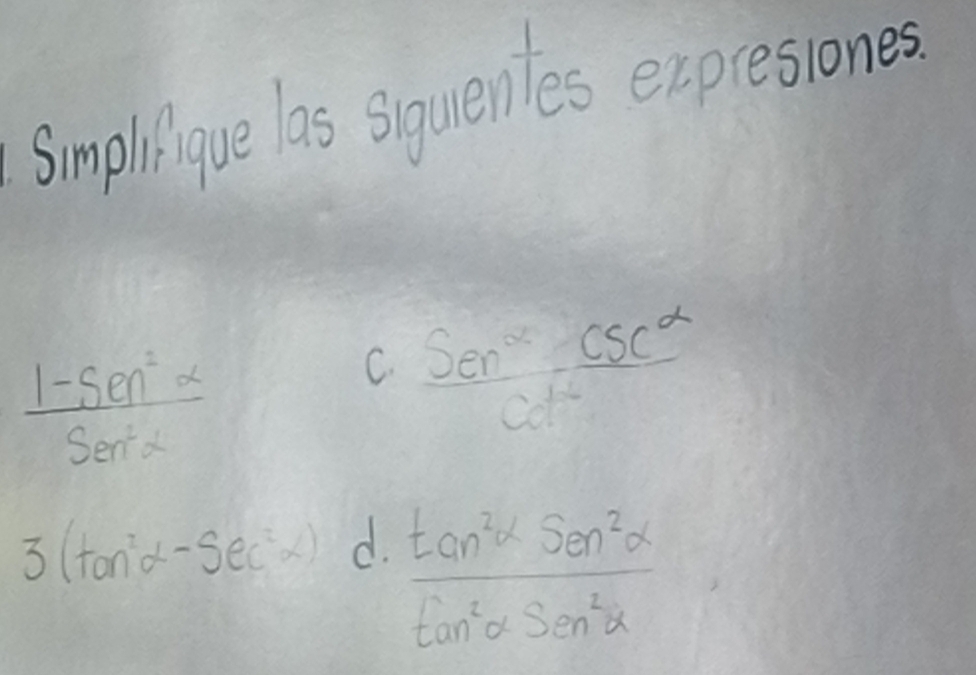 1. Simplifique las siguientes expresiones.
1-Sen² α
Sen² α
c. Sen α csc α
Cot α
3 (tan²α - Sec²α)
d. tan²α Sen²α
tan²α Sen²α